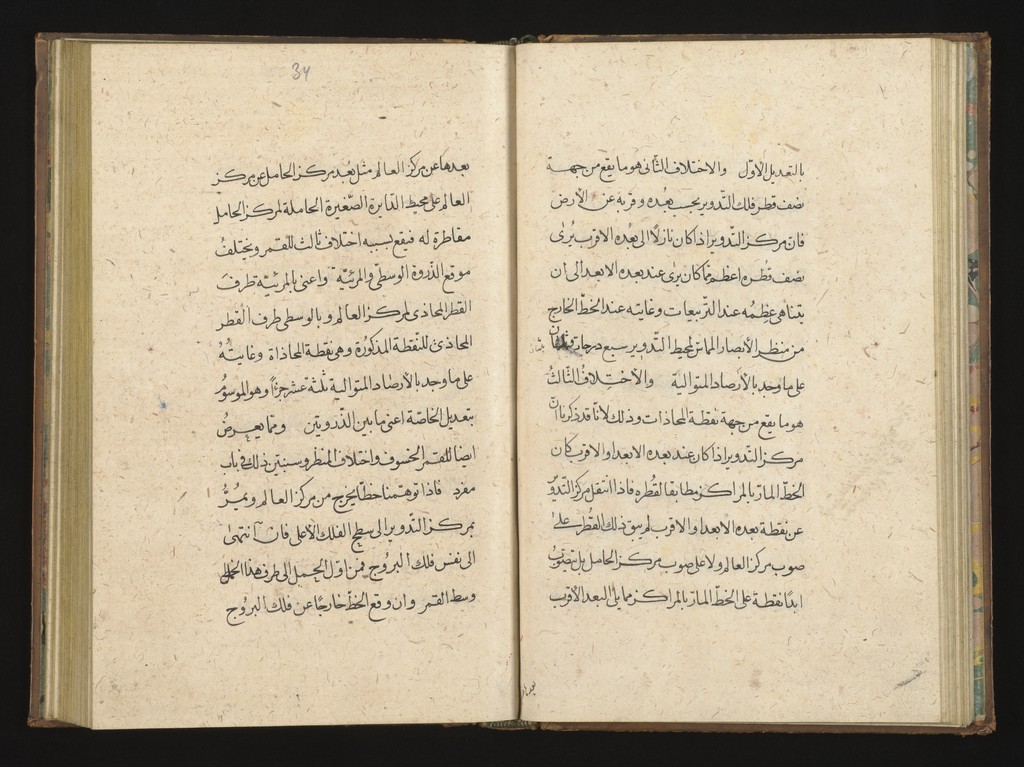 بالتعديل الاول والاختلاف الثاني هو ما يقع من جهة
نصف قطر فلك التدوير بحسب بعده وقربه عن الارض
فان مركز التدوير اذا كان نازلا الى بعده الاقرب يرى
نصف قطره اعظم مما كان يرى عند بعده الابعد الى ان
يتناهى عظمه عند التربيعات وغايته عند الخط الخارج
من منظر الأبصار المماس لمحيط التدوير سبع درجات
على ما وجد بالأرصاد المتوالية والأختلاف الثالث
هو ما يقع من جهة نقطة المحاذات وذلك لانا قد ذكرنا ان
مركز التدوير اذا كان عند بعده الابعد او الاقرب كان
الخط المار بالمراكز مطابقا لقطره فاذا انتقل مركز التدوير
عن نقطة بعده الابعد او الاقرب لم يبق ذلك القطر على
صوب مركز العالم ولا على صوب مركز الحامل بل يتصوب
ابدا نقطة على الخط المار بالمراكز مما يلي البعد الأقرب
بعدها
34
بعدها عن مركز العالم مثل بعد مركز الحامل عن مركز
العالم على محيط الدايرة الصغيرة الحاملة لمركز الحامل
مقاطرة له فيقع بسببه اختلاف ثالث للقمر ويختلف
موقع الذروة الوسطى والمرئية واعنى بالمرئية طرف
القطر المحاذى لمركز العالم وبالوسطى طرف القطر
المحاذى للنقطة المذكورة وهى نقطة المحاذاة وغايته
على ما وجد بالأرصاد المتوالية ثلثة عشر جزءا وهو الموسوم
بتعديل الخاصة اعنى ما بين الذروتين ومما يعرض
ايضا للقمر الخسوف واختلاف المنظر وسنبين ذلك فى باب
مفرد فاذا توهمنا خطا يخرج من مركز العالم ويمر
بمركز التدوير الى سطح الفلك الأعلى فان انتهى
الى نفس فلك البروج فمن اول الحمل الى طرف هذا الخط
وسط القمر وان وقع الخط خارجا عن فلك البروج